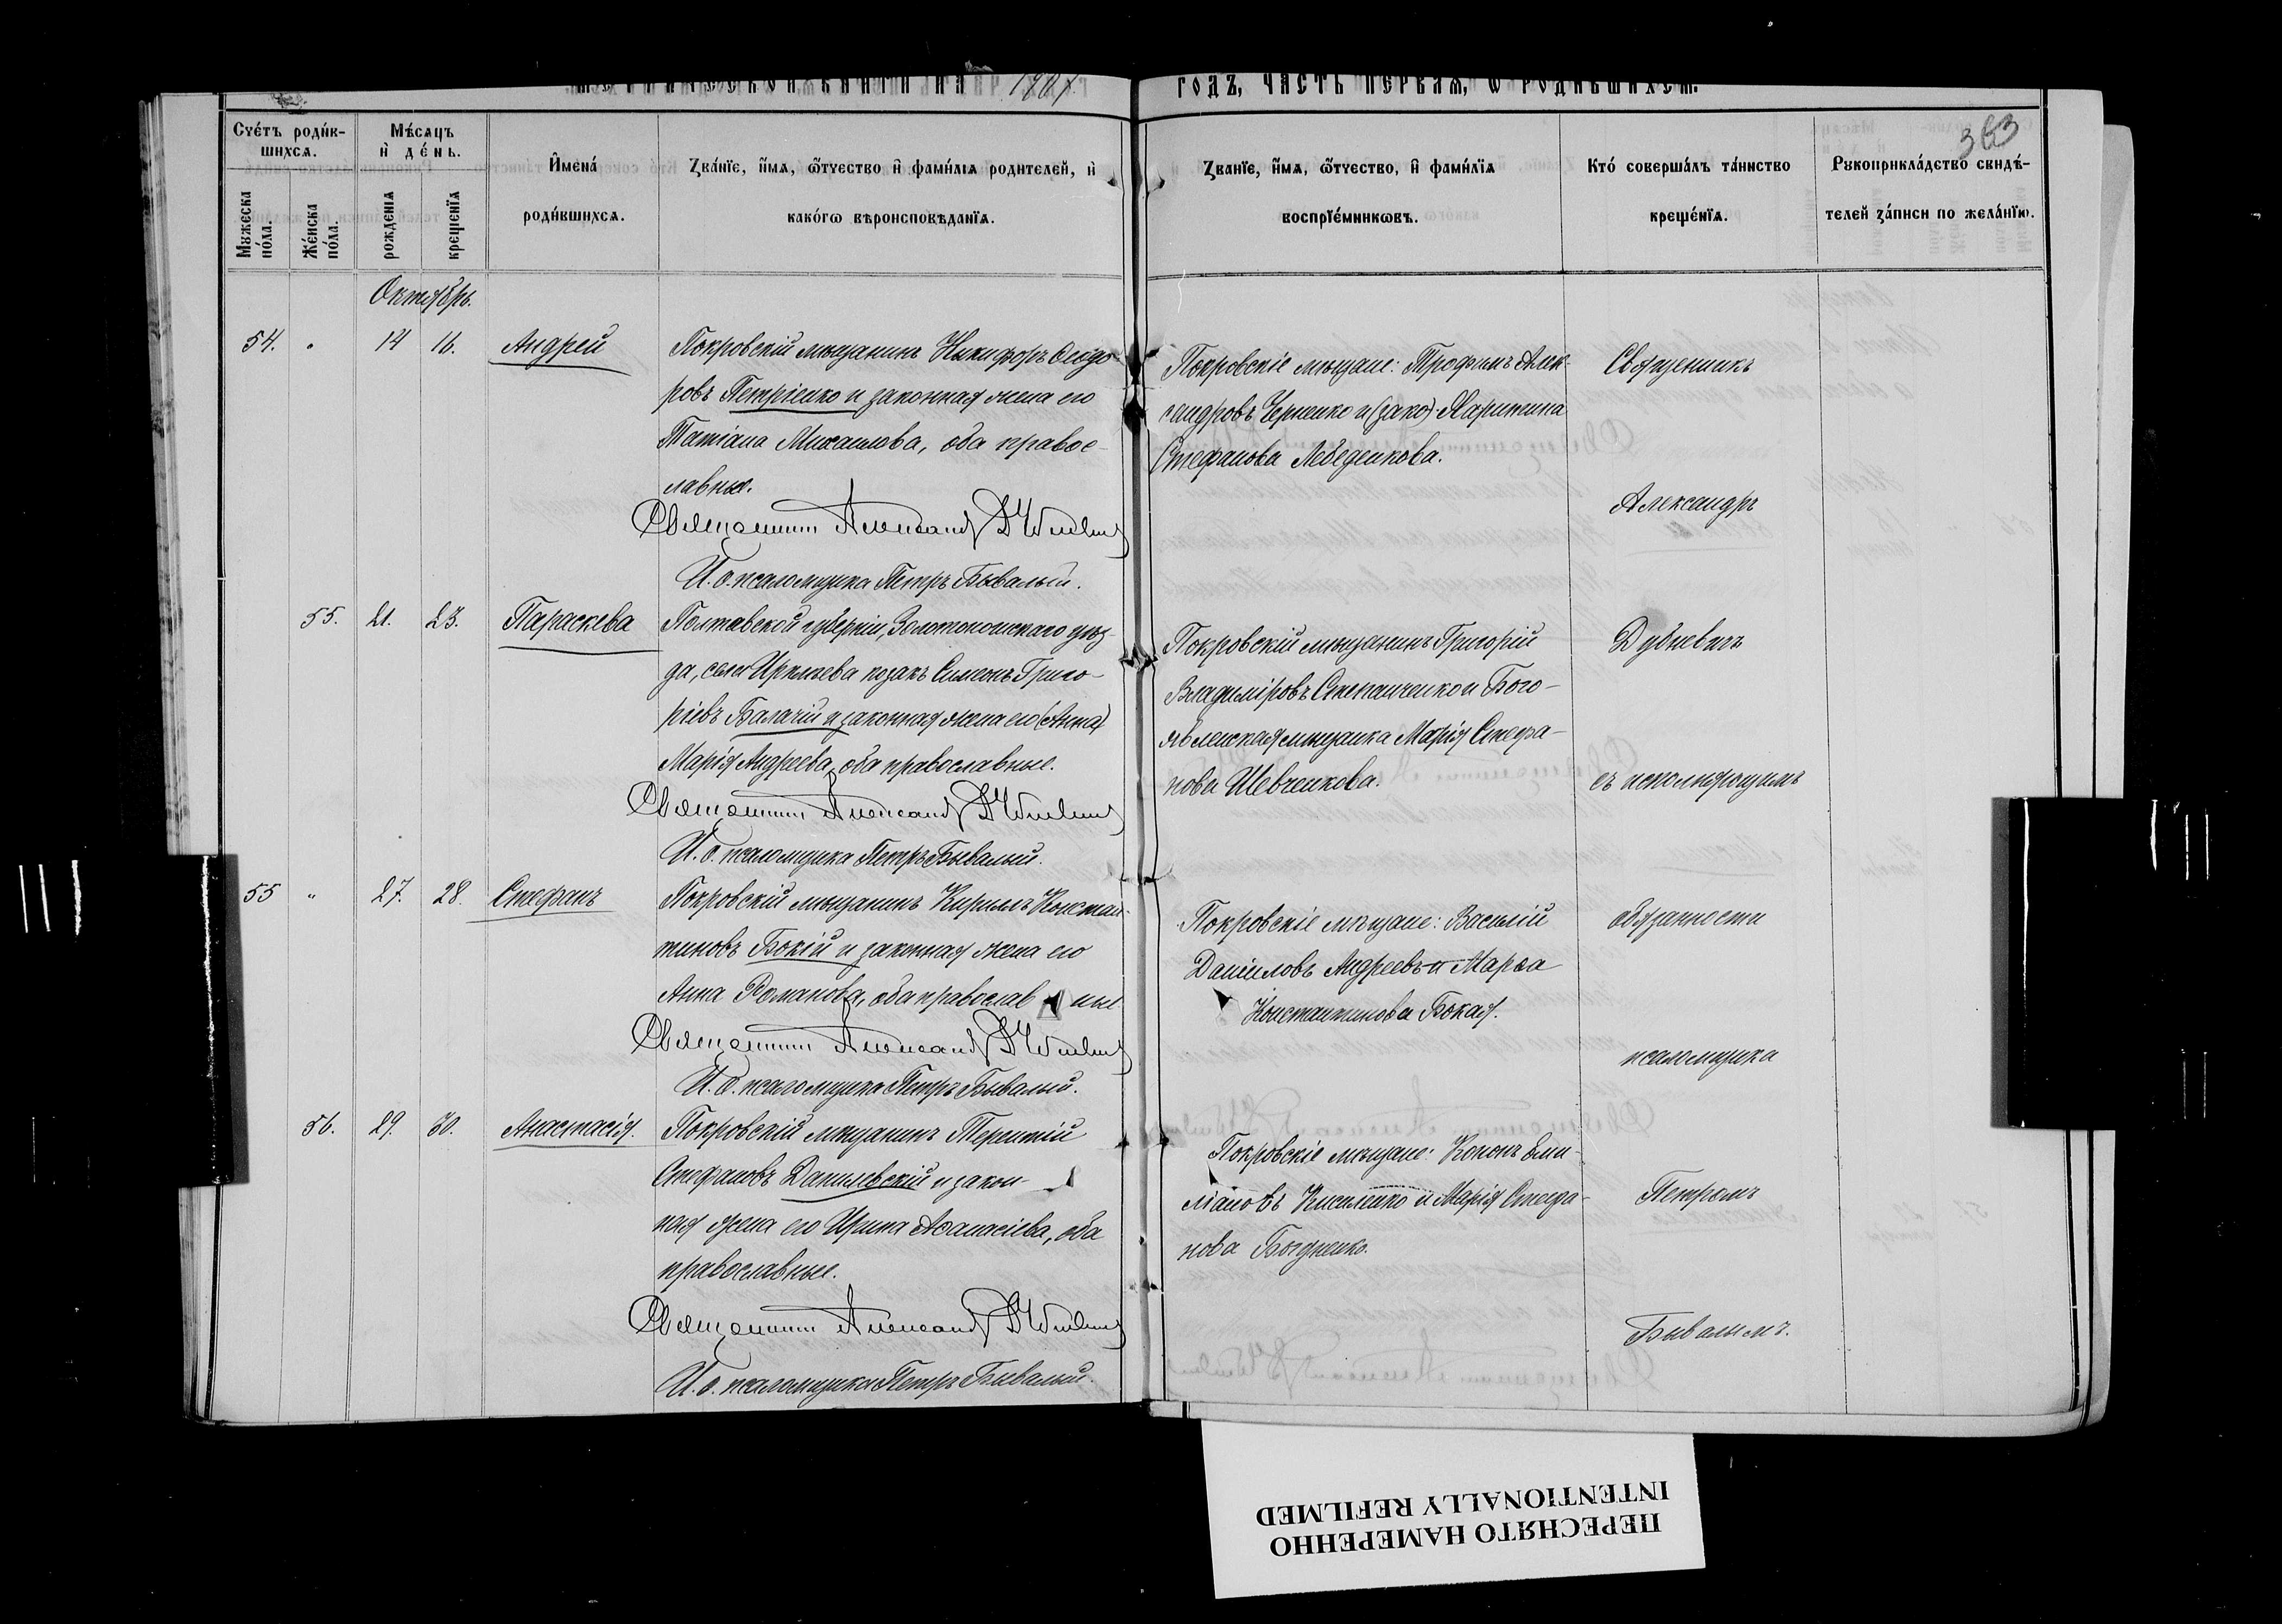 МЕТРИЧЕСКОЙ КНИГИ НА 1901 ГОДЪ, ЧАСТЬ ПЕРВАЯ, Ѡ РОДИВШИХСЯ.
363
Счétъ роди́вшихся.
Мýжеска пóла.
Жéнска пóла.
Мѣ́сяцъ и҆ дéнь.
рожденїѧ
крещенїѧ
И҆мена́ роди́вшихсѧ.
Ꙁва́нїе, и҆́мѧ, ѻ҆́тчество и҆ фамѵ́лїѧ родителей, и҆
како́гѡ вѣроисповѣданїѧ.
Ꙁванїе, и҆́мѧ, ѻ҆́тчество, и҆ фамѵ́лїѧ
воспрїе́мникѡвъ.
Кто́ соверша́лъ та́инство
креще́нїѧ.
Рꙋкоприкла́дство свидѣ́-
телей за́писи по жела́нїю.
Октябрь.
54. " 14 16. Андрей
Покровскій мѣщанинъ Никифоръ Ѳеодо-
ровъ Петріенко и законная жена его
Татіана Михаилова, оба правос-
лавные.
Священникъ Александръ Дубневичъ
И. о. псаломщика Петръ Бывалый.
Покровскіе мѣщане: Трофимъ Алек-
сандровъ Черненко и (зако) Харитина
Стефанова Лебеденкова.
55. 21. 23. Параскева
Полтавской губерніи, Золотоношскаго уѣз-
да, села Иркліева козакъ Симеонъ Григо-
ріевъ Балачій и законная жена его (Анна)
Марія Андреева, оба православные.
Священникъ Александръ Дубневичъ
И. о. псаломщика Петръ Бывалый.
Покровскій мѣщанинъ Григорій
Владиміровъ Степанченко и Бого-
явленская мѣщанка Марія Стефа-
нова Шевченкова.
55 " 27. 28. Стефанъ
Покровскій мѣщанинъ Кирилъ Констан-
тиновъ Бокій и законная жена его
Анна Романова, оба православ ные
Священникъ Александръ Дубневичъ
И. о. псаломщика Петръ Бывалый.
Покровскіе мѣщане: Василій
Даніиловъ Андреевъ и Марѳа
Константинова Бокая.
56. 29. 30. Анастасія.
Покровскій мѣщанинъ Терентій
Стефановъ Данилевскій и закон-
ная жена его Ирина Аѳанасіева, оба
православные.
Священникъ Александръ Дубневичъ
И. о. псаломщика Петръ Бывалый.
Покровскіе мѣщане: Кононъ Еми-
ліановъ Кисиленко и Марія Стефа-
нова
Священникъ
Александръ
Дубневичъ
съ исполняющимъ
обязанности
псаломщика
Петромъ
Бывалымъ.
ПЕРЕСНЯТО НАМЕРЕННО
INTENTIONALLY REFILMED